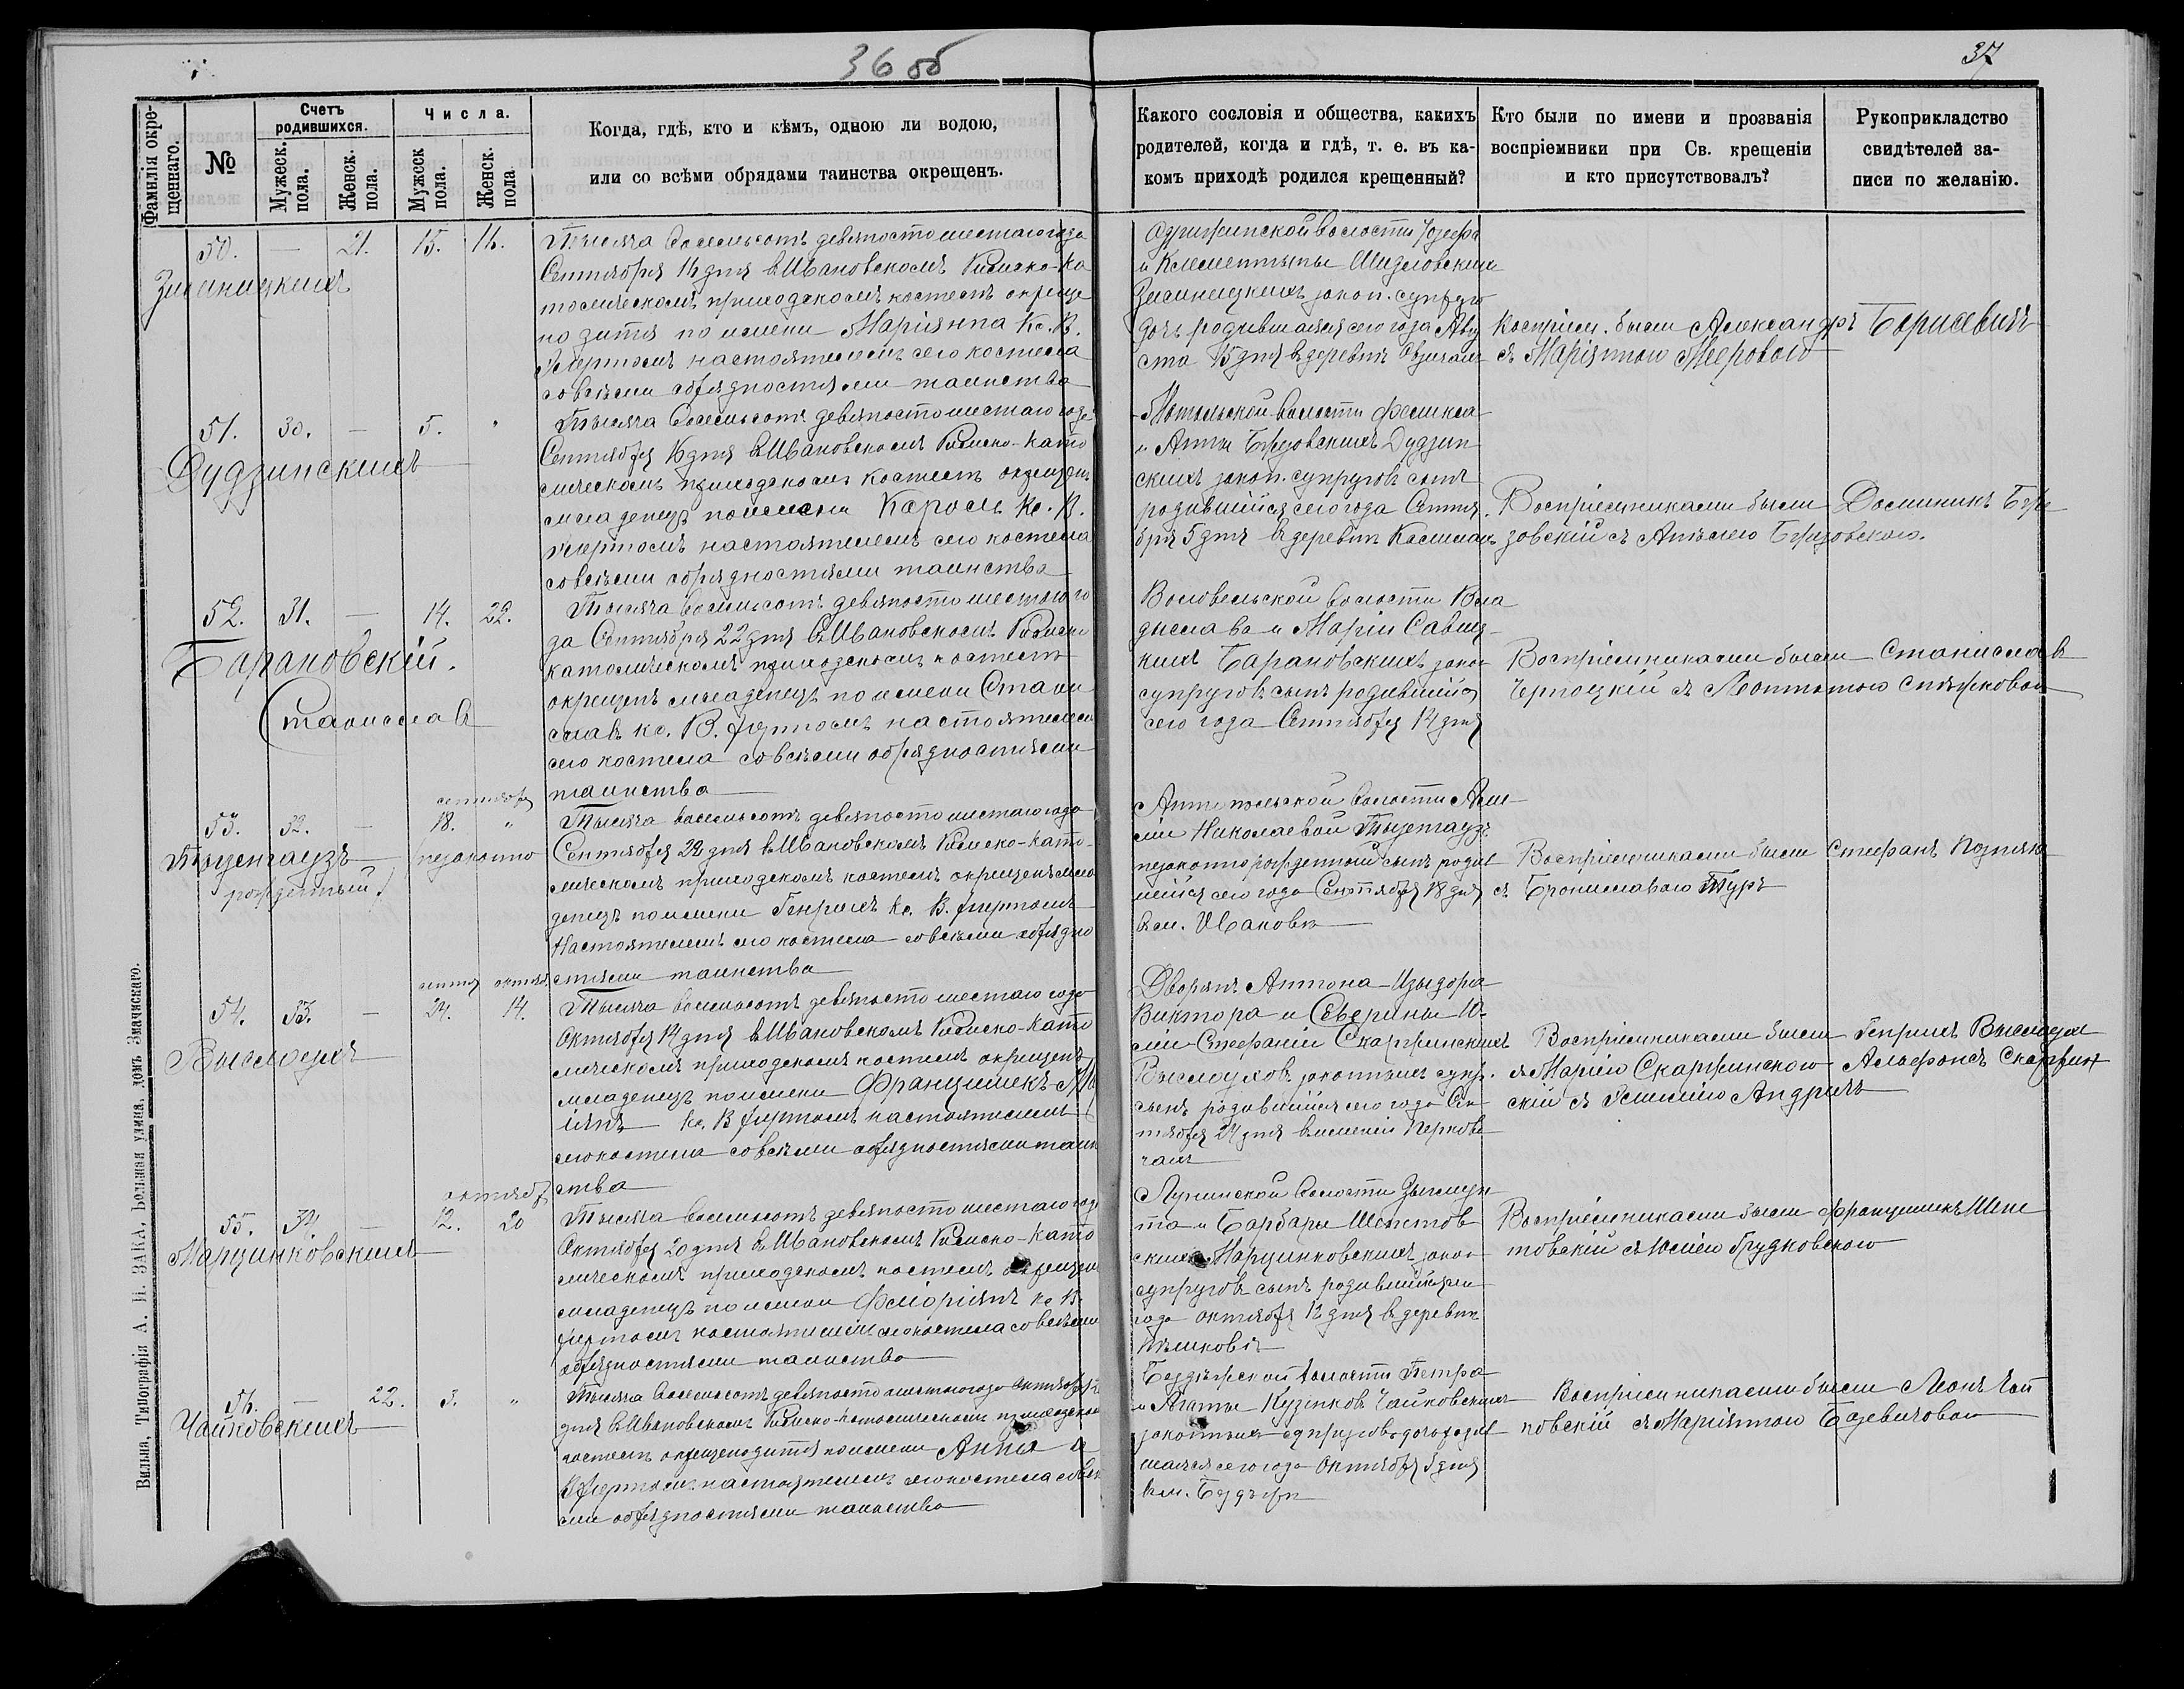 36 об
37
Фамилія окрещеннаго.
№
Счетъ родившихся.
Мужеск. пола.
Женск. пола.
Числа.
Мужеск пола.
Женск. пола
Когда, гдѣ, кто и кѣмъ, одною ли водою,
или со всѣми обрядами таинства окрещенъ.
Какого сословія и общества, какихъ
родителей, когда и гдѣ, т. е. въ ка-
комъ приходѣ родился крещенный?
Кто были по имени и прозванія
воспріемники при Св. крещеніи
и кто присутствовалъ?
Рукоприкладство
свидѣтелей за-
писи по желанію.
50. — 21. 15. 16.
Тысяча восемьсотъ девяносто шестаго года
Сентября 16 дня въ Ивановскомъ Римско-Ка
толическомъ приходскомъ костелѣ окреще
но дитя по имени Маріянна Кс. В.
настоятелемъ сего костела
со всѣми обрядностями таинства
волости Іозефа
и Клементыны Шидловскихъ
закон. супруговъ
дочь родившаяся сего года Авгу
ста 15 дня въ деревнѣ
Воспріем. были Александръ Борисевичъ
съ Маріянною
51. 30. — 5. "
Дудзинскихъ
Тысяча восемьсотъ девяносто шестаго года
Сентября 16 дня въ Ивановскомъ Римско-Като
лическомъ приходскомъ костелѣ окрещенъ
младенецъ по имени Кароль Кс. В.
настоятелемъ сего костела
со всѣми обрядностями таинства
Мотольской волости Феликса
и Анны Бржозовскихъ Дудзин
скихъ закон. супруговъ сынъ
родившійся сего года Сентя.
бря 5 дня въ деревнѣ
Воспріемниками были Доминикъ Брж
зовскій съ Анѣлею Бржозовскою.
52. 31. — 14. 22.
Барановскій.
Станиславъ
Тысяча восемьсотъ девяносто шестого го
да Сентября 22 дня въ Ивановскомъ Римско
католическомъ приходскомъ костелѣ
окрещенъ младенецъ по имени Стани
славъ кс. В. настоятелемъ
сего костела со всѣми обрядностями
таинства
Воловельской волости Вла
дыслава и Маріи Савиц
кихъ Барановскихъ закон
супруговъ сынъ родившійся
сего года Сентября 14 дня
Воспріемниками были Станиславъ
съ
53. 32. — сентября 18. "
Тызенгаузъ
(незаконно
рожденный)
Тысяча восемьсотъ девяносто шестаго года
Сентября 22 дня въ Ивановскомъ Римско-Като-
лическомъ приходскомъ костелѣ окрещенъ мла
денецъ по имени Генрихъ Кс. В.
Настоятелемъ сего костела со всѣми обрядно
стями таинства
Антопольской волости
Николаевой Тызенгаузъ
незаконнорожденный сынъ родив
шійся сего года Сентября 18 дня
въ м. Ивановѣ
Воспріемниками были Стефанъ
съ Брониславою Туръ
54. 33. — сентя 24. октяб 14.
Выслоухъ
Тысяча восемьсотъ девяносто шестаго года
Октября 14 дня въ Ивановскомъ Римско-Като
лическомъ приходскомъ костелѣ окрещенъ
младенецъ по имени Францишекъ
Кс. В настоятелемъ
сего костела со всѣми обрядностями таин
ства
Дворянъ Антона-Изыдора
Виктора и Северины Ю-
ліи Стефаніи Скаржинскихъ
Выслоуховъ законныхъ супр.
сынъ родившійся сего года Сен
тября 24 дня въ имѣніи Перкови
чахъ
Воспріемниками были Генрихъ Выслоухъ
съ Маріею Скаржинскою Альфонсъ Скаржин
скій съ Эмиліею
55. 34. — октября 12. 20
Марцинковскихъ
Тысяча восемьсотъ девяносто шестаго года
Октября 20 дня въ Ивановскомъ Римско-Като
лическомъ приходскомъ костелѣ окрещенъ
младенецъ по имени Флоріянъ Кс В.
настоятелемъ сего костела со всѣми
обрядностями таинства
Лунинской волости Зыгмун
та и Барбары Шепетов
скихъ Марцинковскихъ закон
супруговъ сынъ родившійся сего
года октября 12 дня въ деревнѣ
Воспріемниками были Францишекъ Шепе
товскій съ Юліею Грудковскою
56. — 22. 3. "
Чайковскихъ
Тысяча восемьсотъ девяносто шестого года Октября
дня въ Ивановскомъ Римско-Католическомъ приходскомъ
костелѣ окрещено дитя по имени Анна
настоятелемъ сего костела со всѣ
ми обрядностями таинства
Бездѣжской волости Петра
и Агаты Кузенковъ Чайковскихъ
законныхъ супруговъ дочь родив
шаяся сего года Октября 3 дня
въ м. Бездѣжѣ
Воспріемниками были Леонъ Чай
ковскій съ Маріянною
Вильна, Типографія А. И. ЗАКА, Большая улица, домъ Змачинскаго.